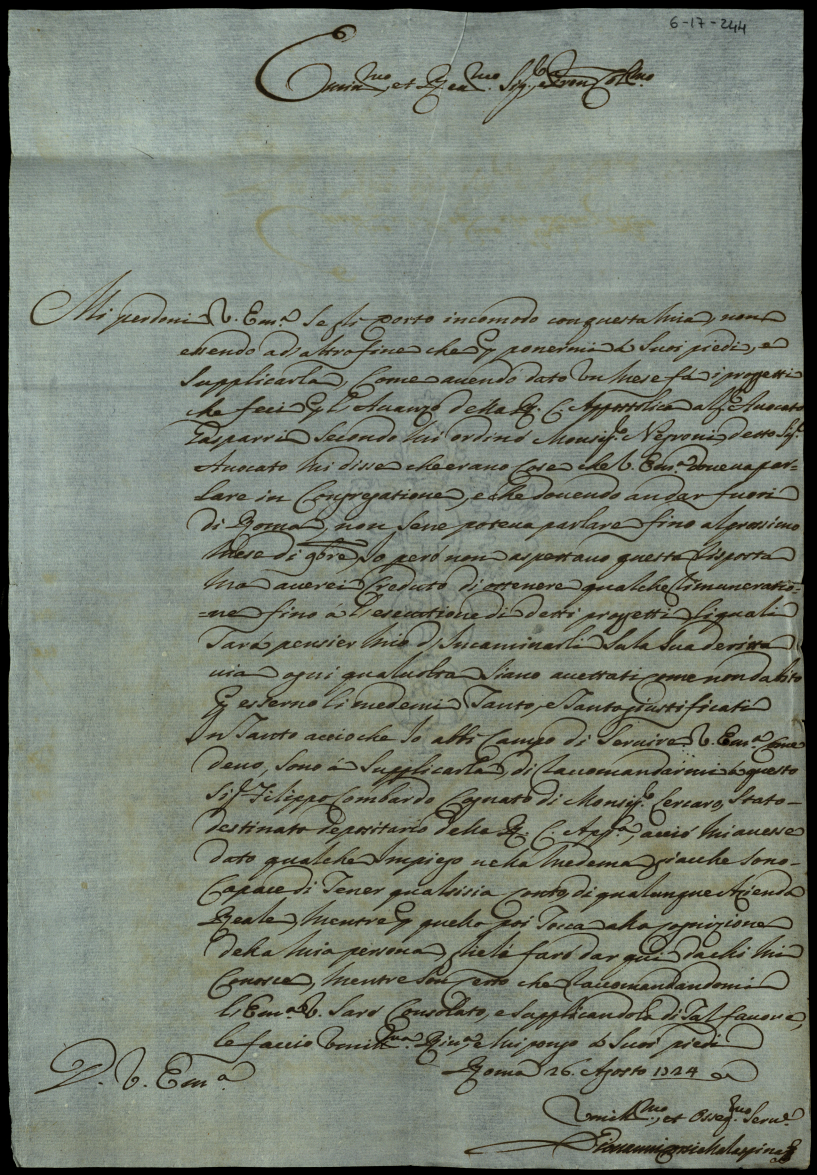 6-17-244
Emin.mo, et Rev.mo Sig.re Pron Col.mo
Mi perdoni V. Em.a se gli porto incomodo con questa mia, non
essendo ad altro fine che p ponermi a Suoi piedi, e
Supplicarla, Come avendo dato un mese fà i progetti
che feci p l'Avanzo della R. C. Appostolica al Avocato
Gasparri Secondo mi ordinò Monsig.r Negroni, detto Sig.r
Avocato mi disse che erano cose che V. Em.a doveva par-
lare in Congregatione, e che dovendo andar fuori
di Roma, non se ne poteva parlare fino al prossimo
Mese di 9bre, Io però non aspettavo questa risposta
ma averei Creduto di ottenere qualche rimuneratio-
=ne fino à l'esecutione di detti progetti li quali
sarà pensier mio d'Incaminarli Su la Sua deritta
via ogni qualvolta siano accettati come non dubito
p esserno li medemi Tanto, e Tanto giustificati
In Tanto acciò che Io abbi Campo di Servire V. Em.a Come
devo, Sono à Supplicarla, di raccomandarmi à questo
Sig.r Filippo Lombardo Cognato di Monsig.r Cercaro, Stato-
destinato depositario della R. C. App.a, acciò mi avesse
dato qualche Impiego nella medema giacche Sono-
Capace di Tener qualsisia Conto, di qualunque Azienda
Reale, mentre p quello poi Tocca alla cognizione
della mia persona, glie la farò dar qui da chi mi
Conosce, mentre Son certo che raccomandandomi
l'Em.a V. Sarò Consolato, e supplicandola di Tal favore,
le faccio Umill.ma River.a, e mi pongo a Suoi piedi
D. V. Em.a
Roma 26. Agosto 1724
Umill.mo, et Osseq.mo Serv.e
Giovanni Malaspina